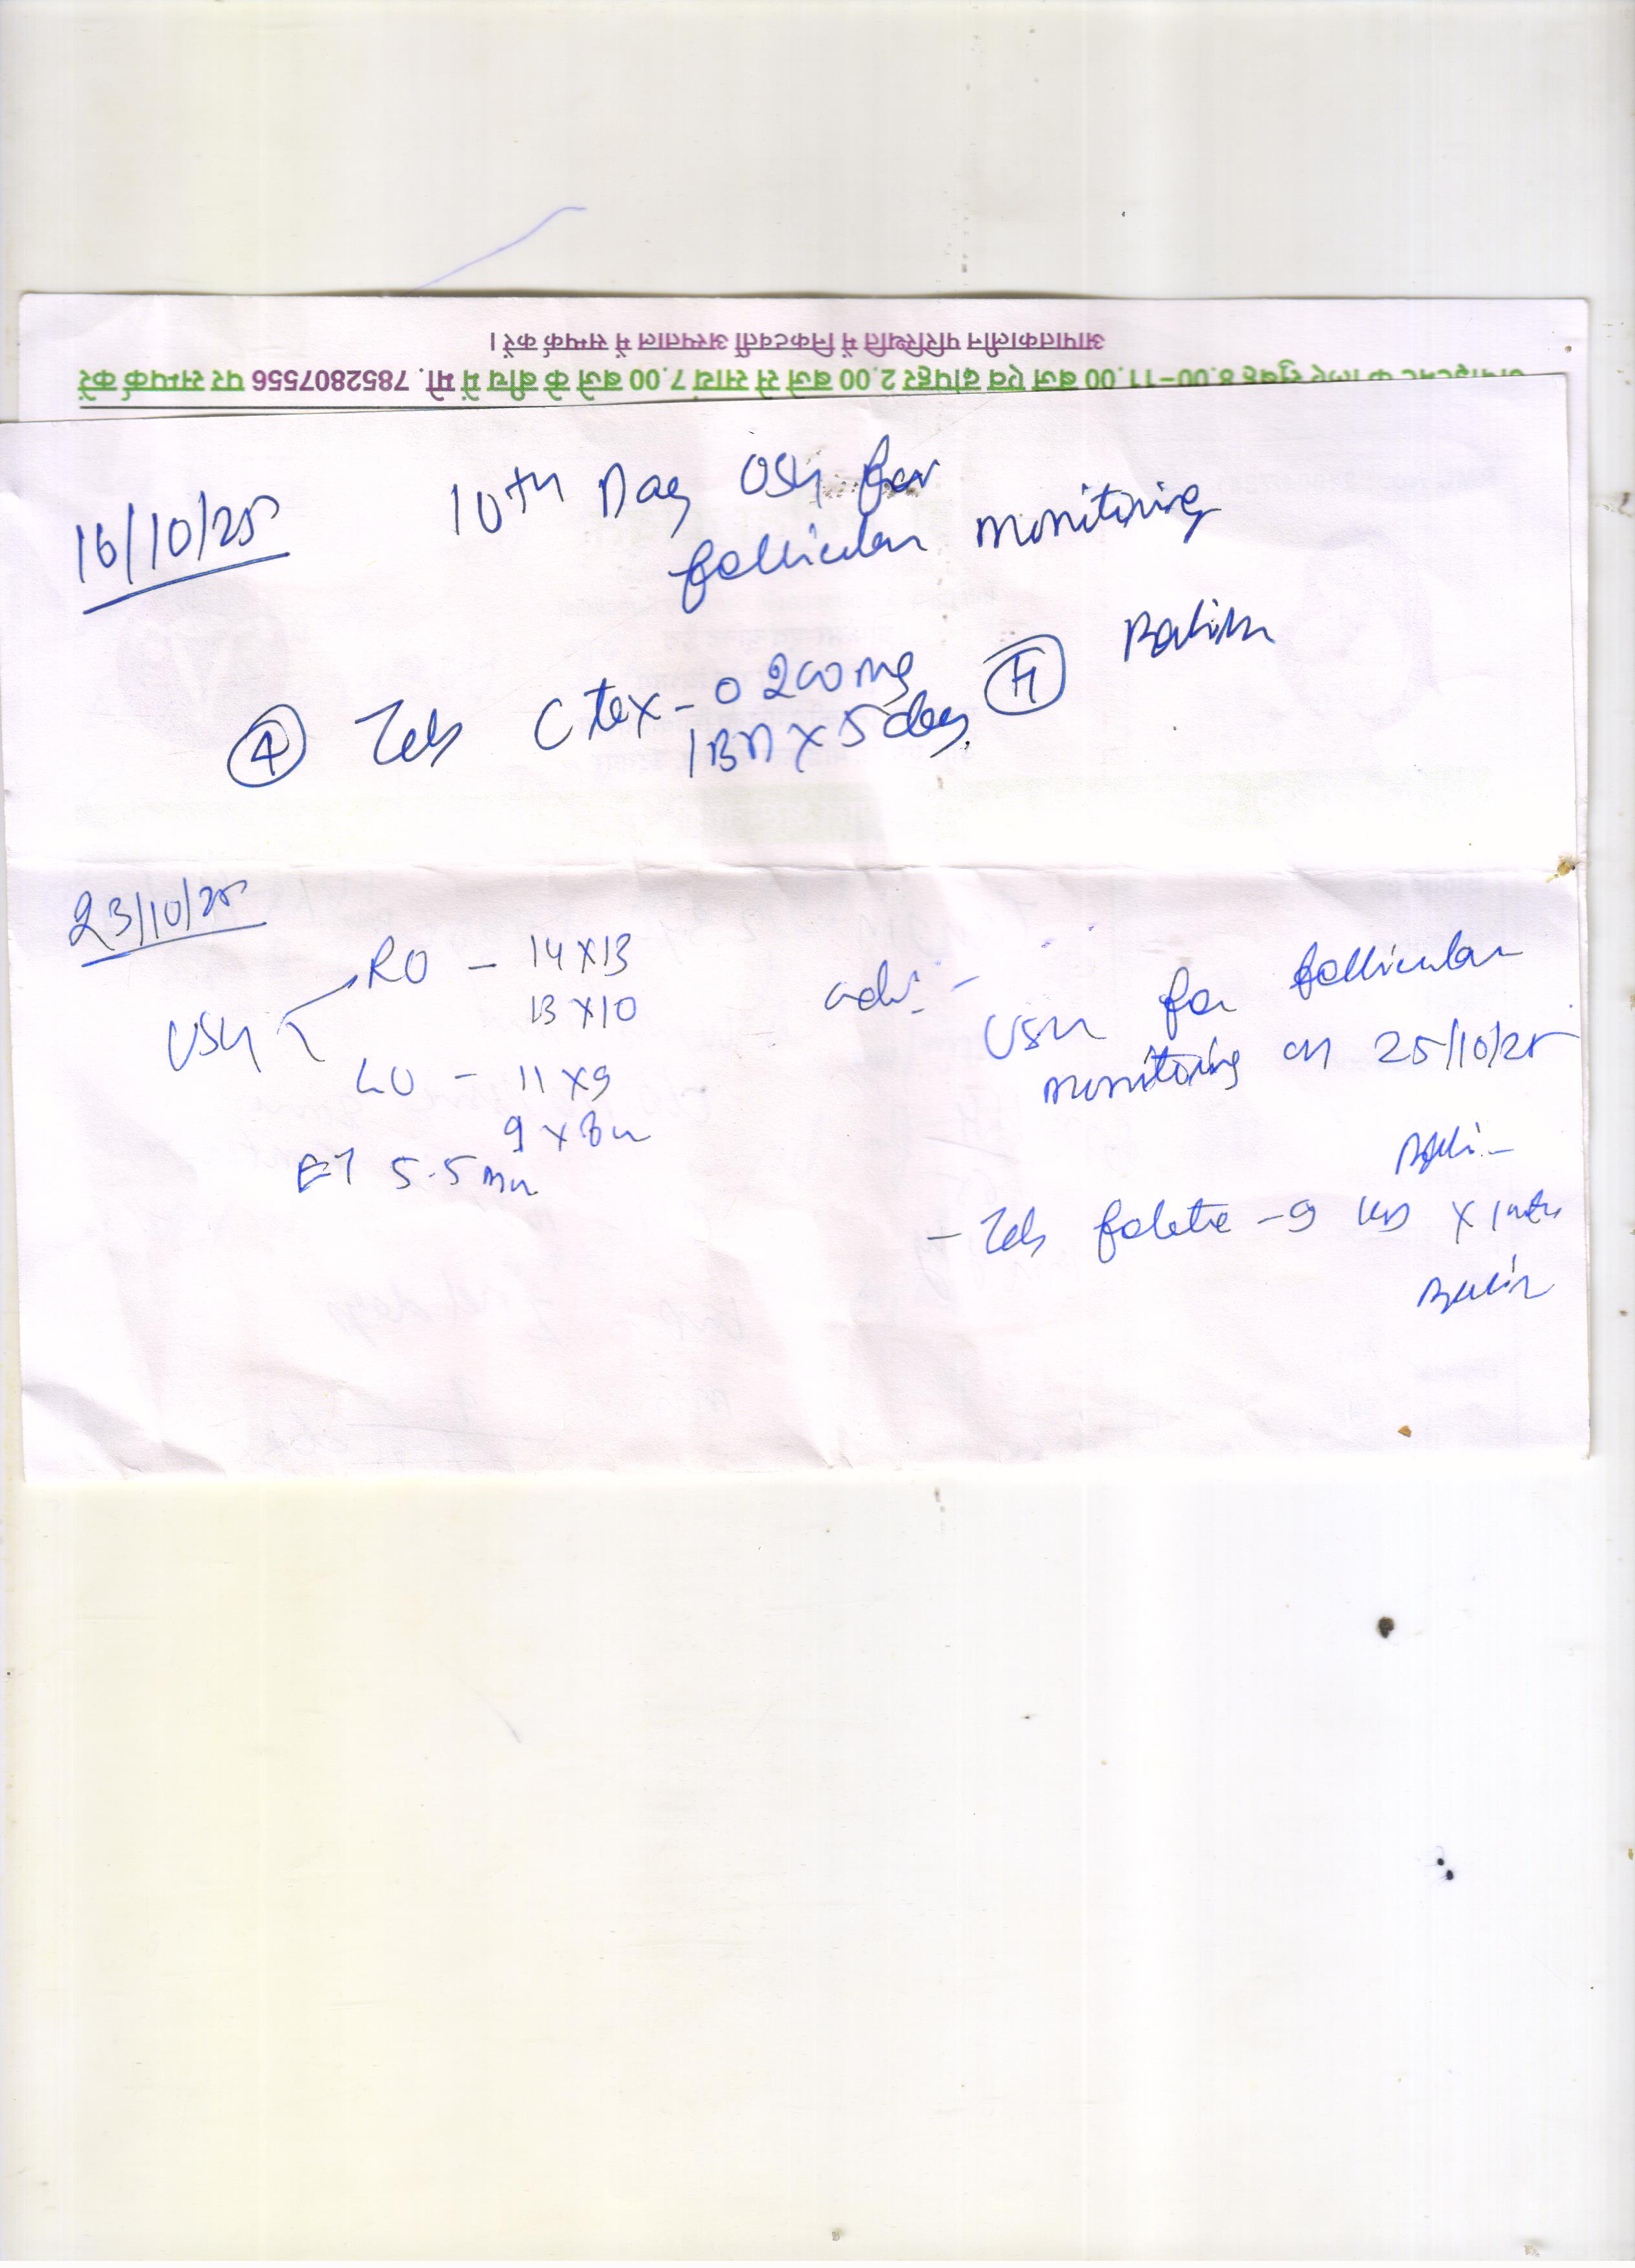 आपातकालीन परिस्थिति में निकटवर्ती अस्पताल में सम्पर्क करें।
के लिए सुबह 8.00-11.00 बजे एवं दोपहर 2.00 बजे से सायं 7.00 बजे के बीच में मो. 7852807556 पर सम्पर्क करें
16/10/25
10th Day USG for
follicular monitoring
④ Tab Ctex-O 200mg
1BD x 5 days
23/10/25
USG
RO - 14x13
13x10
LO - 11x9
9x8
ET 5.5 mm
adv: -
USG for follicular
monitoring on 25/10/25
- Tab